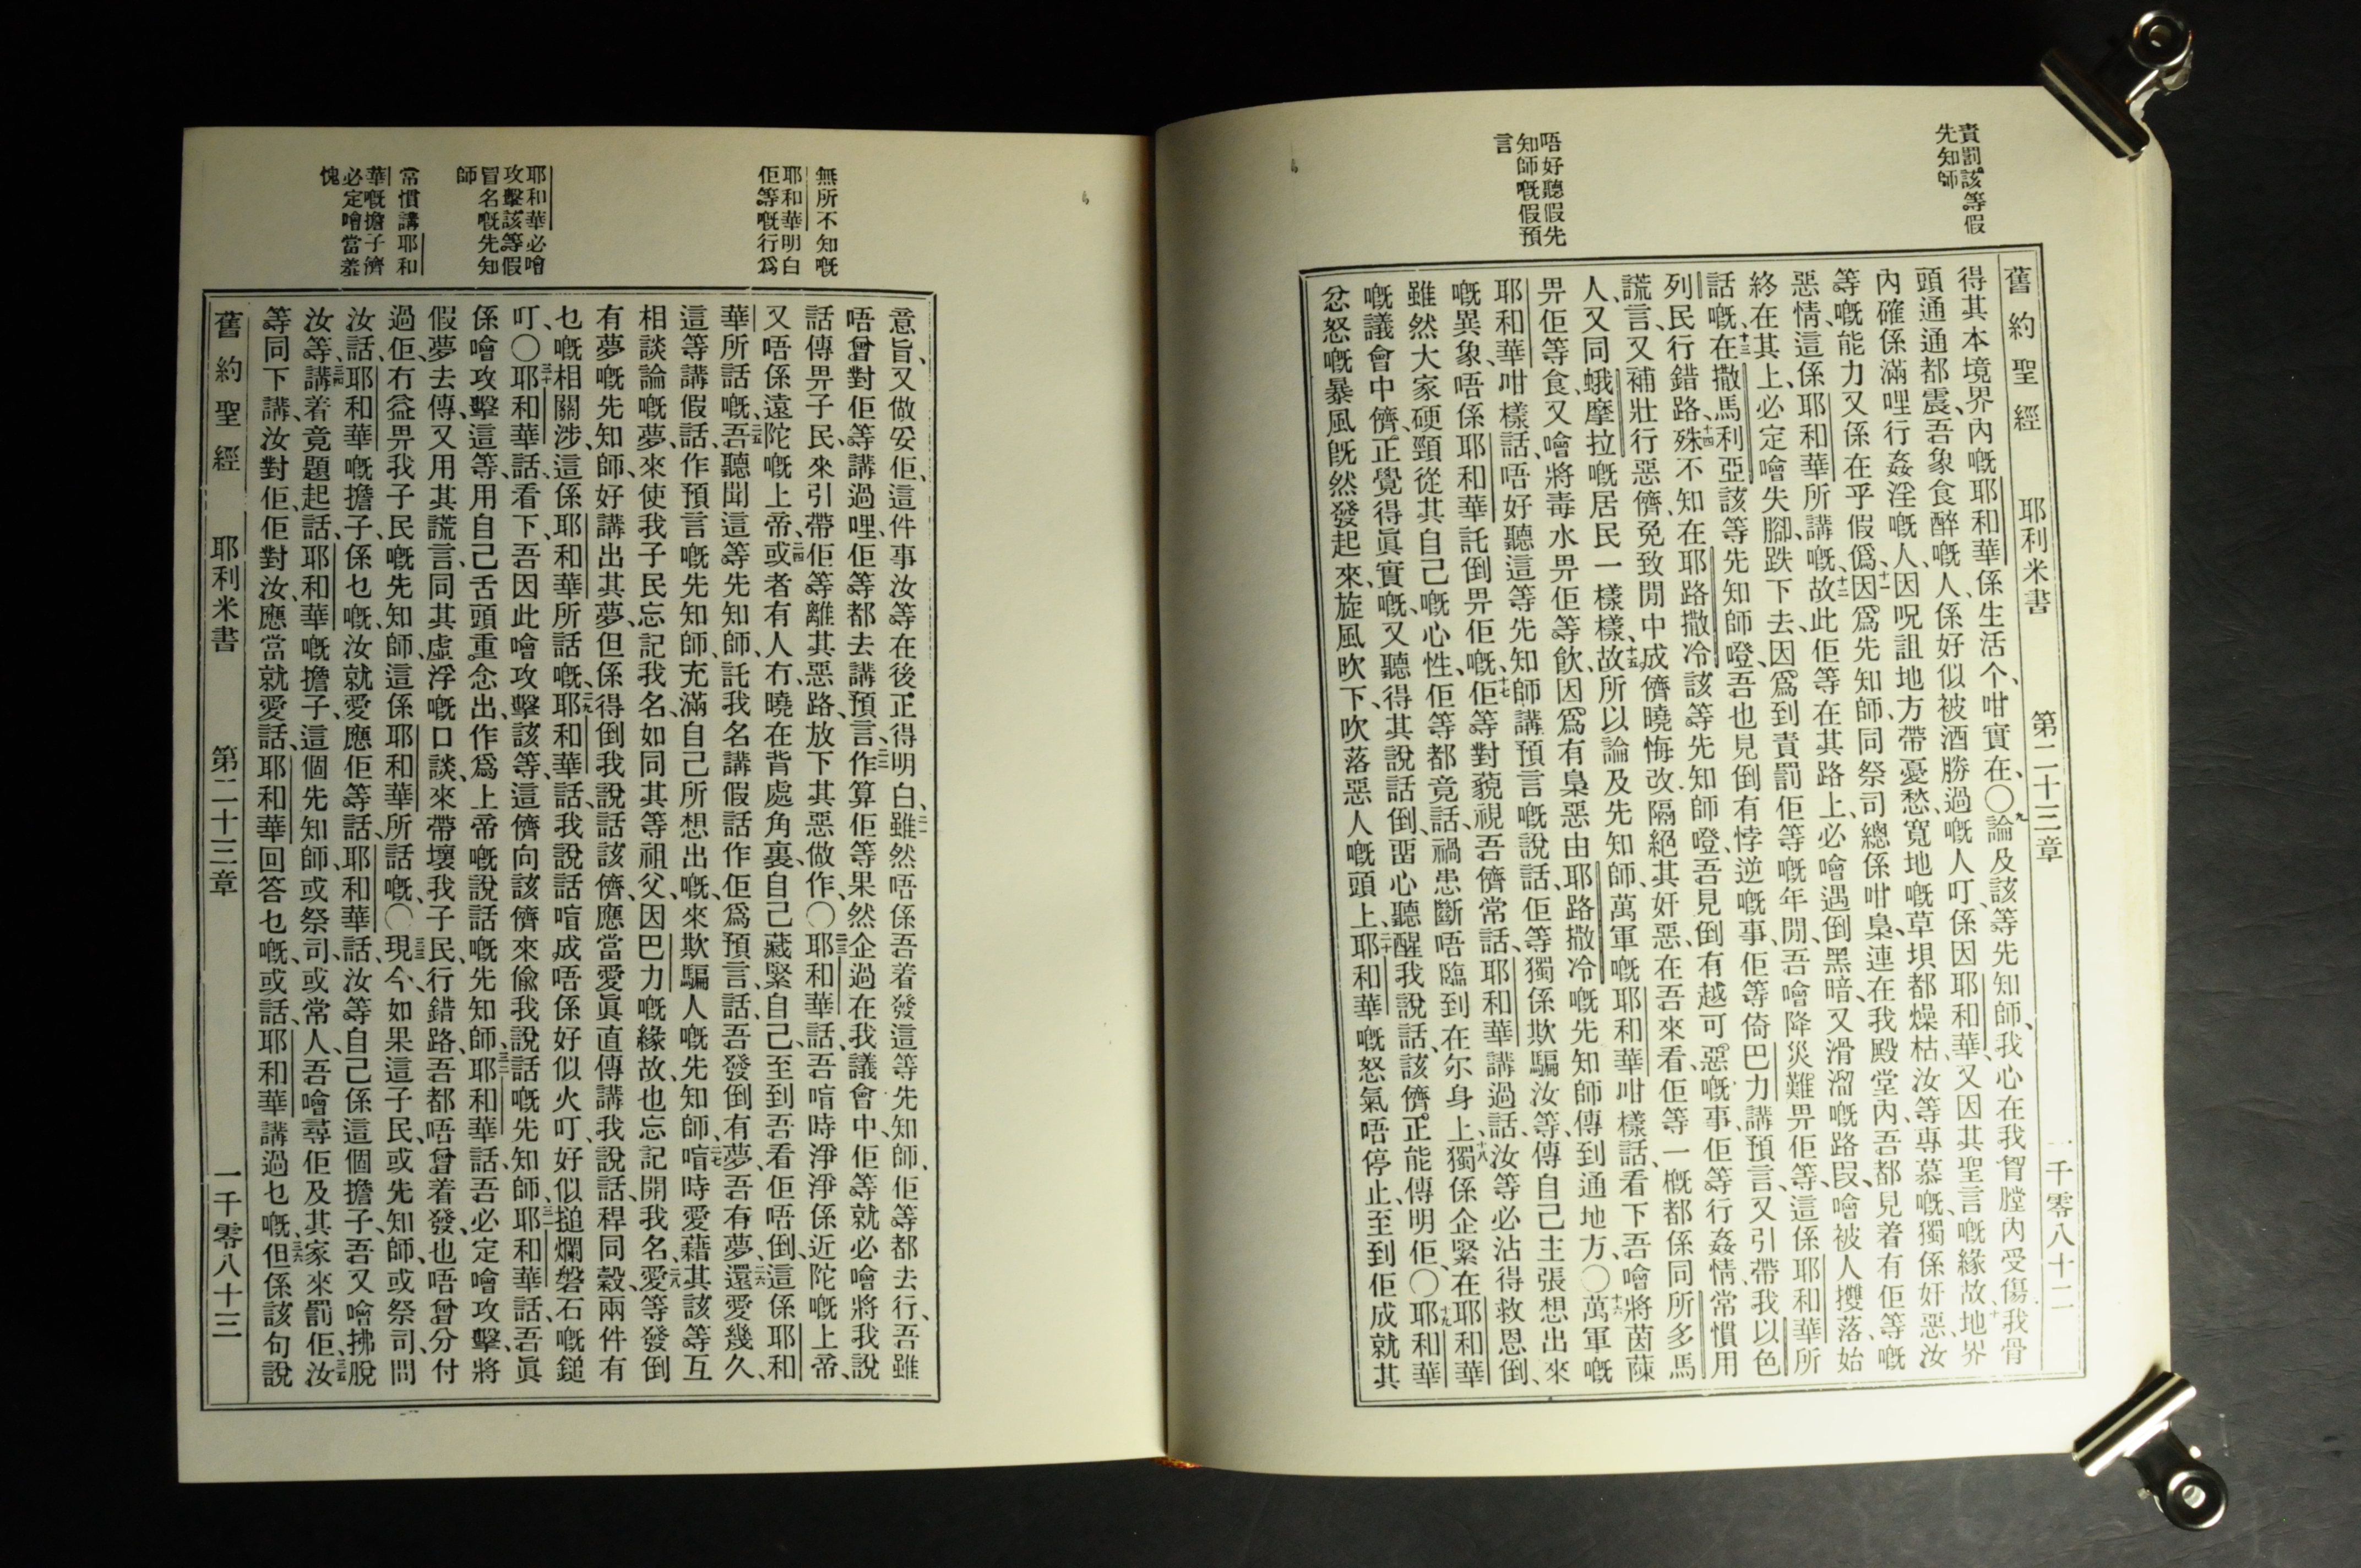 責罰該等假
先知師
唔好聽假先
知師嘅假預
言
舊約聖經 耶利米書 第二十三章 一千零八十二
得其本境界內嘅耶和華係生活个、咁實在、〇九論及該等先知師、我心在我胷膛內受傷、我骨
頭通通都震、吾象食醉嘅人、係好似被酒勝過嘅人叮、係因耶和華、又因其聖言嘅緣故、十地界
內確係滿哩行姦淫嘅人、因呪詛地方帶憂愁、寬地嘅草垻都燥枯、汝等專慕嘅獨係奸惡、汝
等嘅能力又係在乎假僞、十一因爲先知師同祭司總係咁梟、連在我殿堂內、吾都見着有佢等嘅
惡情、這係耶和華所講嘅、十二故此佢等在其路上、必噲遇倒黑暗、又滑溜嘅路段、噲被人㩳落、始
終在其上、必定噲失腳、跌下去、因爲到責罰佢等嘅年閒、吾噲降災難畀佢等、這係耶和華所
話嘅、十三在撒馬利亞該等先知師嶝、吾也見倒有悖逆嘅事、佢等倚巴力講預言、又引帶我以色
列民行錯路、十四殊不知在耶路撒冷該等先知師嶝、吾見倒有越可惡嘅事、佢等行姦情、常慣用
謊言、又補壯行惡儕、免致閒中成儕曉悔改隔絕其奸惡、在吾來看、佢等一概都係同所多馬
人、又同蛾摩拉嘅居民一樣樣、十五故所以論及先知師、萬軍嘅耶和華咁樣話、看下、吾噲將茵蔯
畀佢等食、又噲將毒水畀佢等飲、因爲有梟惡由耶路撒冷嘅先知師傳到通地方、〇十六萬軍嘅
耶和華咁樣話、唔好聽這等先知師講預言嘅說話、佢等獨係欺騙汝等、傳自己主張想出來
嘅異象、唔係耶和華託倒畀佢嘅、十七佢等對藐視吾儕常話、耶和華講過話、汝等必沾得救恩倒、
雖然大家硬頸從其自己嘅心性、佢等都竟話、禍患斷唔臨到在尔身上、十八獨係企緊在耶和華
嘅議會中儕、正覺得眞實嘅、又聽得其說話倒、畱心聽醒我說話、該儕正能傳明佢、〇十九耶和華
忿怒嘅暴風旣然發起來、旋風吹下、吹落惡人嘅頭上、二十耶和華嘅怒氣唔停止、至到佢成就其
無所不知嘅
耶和華明白
佢等嘅行爲
耶和華必噲
攻擊該等假
冒名嘅先知
師
常慣講耶和
華嘅擔子儕
必定噲當羞
愧
意旨、又做妥佢、這件事汝等在後正得明白、二一雖然唔係吾着發這等先知師、佢等都去行、吾雖
唔曾對佢等講過哩、佢等都去講預言、二二作算佢等果然企過在我議會中、佢等就必噲將我說
話傳畀子民、來引帶佢等離其惡路、放下其惡做作、〇二三耶和華話、吾唷時淨淨係近陀嘅上帝、
又唔係遠陀嘅上帝、二四或者有人冇曉在背處角裏、自己藏緊自己、至到吾看佢唔倒、這係耶和
華所話嘅、二五吾聽聞這等先知師、託我名講假話、作佢爲預言、話、吾發倒有夢、吾有夢、二六還愛幾久、
這等講假話、作預言嘅先知師、充滿自己所想出嘅、來欺騙人嘅先知師、二七唷時愛藉其該等互
相談論嘅夢、來使我子民忘記我名、如同其等祖父、因巴力嘅緣故也忘記開我名、二八愛等發倒
有夢嘅先知師、好講出其夢、但係得倒我說話該儕、應當愛眞直傳講我說話、稈同穀兩件有
乜嘅相關涉、這係耶和華所話嘅、二九耶和華話、我說話唷成唔係好似火叮、好似搥爛磐石嘅鎚
叮、〇三十耶和華話、看下、吾因此噲攻擊該等、這儕向該儕來偸我說話嘅先知師、三一耶和華話、吾眞
係噲攻擊這等、用自己舌頭重念出、作爲上帝嘅說話嘅先知師、三二耶和華話、吾必定噲攻擊、將
假夢去傳、又用其謊言、同其虛浮嘅口談、來帶壞我子民行錯路、吾都唔曾着發、也唔曾分付
過佢、冇益畀我子民嘅先知師、這係耶和華所話嘅、〇三三現今、如果這子民、或先知師、或祭司、問
汝話、耶和華嘅擔子、係乜嘅、汝就愛應佢等話、耶和華話、汝等自己係這個擔子、吾又噲拂脫
汝等、三四講着竟題起話、耶和華嘅擔子、這個先知師、或祭司、或常人、吾噲尋佢及其家來罰佢、三五汝
等同下講、汝對佢、佢對汝、應當就愛話、耶和華回答乜嘅、或話、耶和華講過乜嘅、三六但係該句說
舊約聖經 耶利米書 第二十三章 一千零八十三